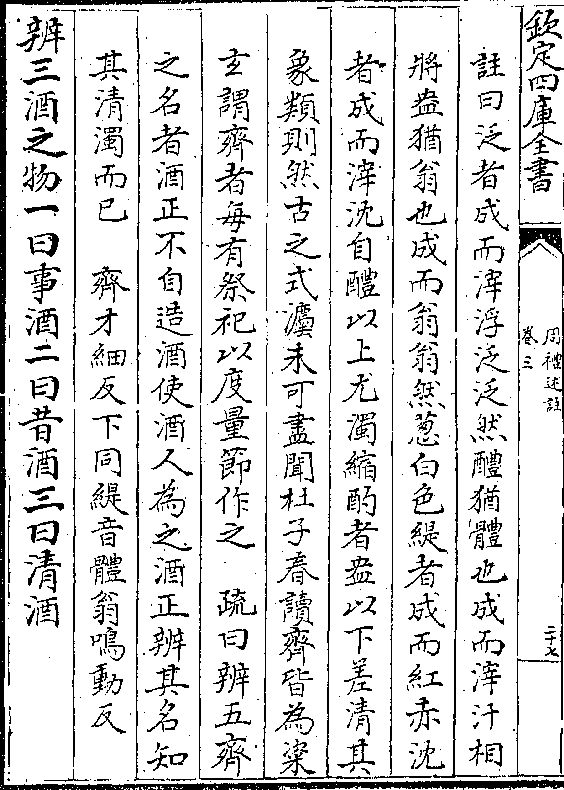 欽定四庫全書
周禮述註
卷三
二十七
註曰泛者成而滓浮泛泛然醴猶體也成而滓汁相
將盎猶翁也成而翁翁然葱白色緹者成而紅赤沈
者成而滓沈自醴以上尤濁縮酌者盎以下差清其
象類則然古之式灋未可盡聞杜子春讀齊皆為粢
玄謂齊者每有祭祀以度量節作之 疏曰辨五齊
之名者酒正不自造酒使酒人為之酒正辨其名知
其清濁而已 齊才細反下同緹音體翁鳴動反
辨三酒之物一曰事酒二曰昔酒三曰清酒